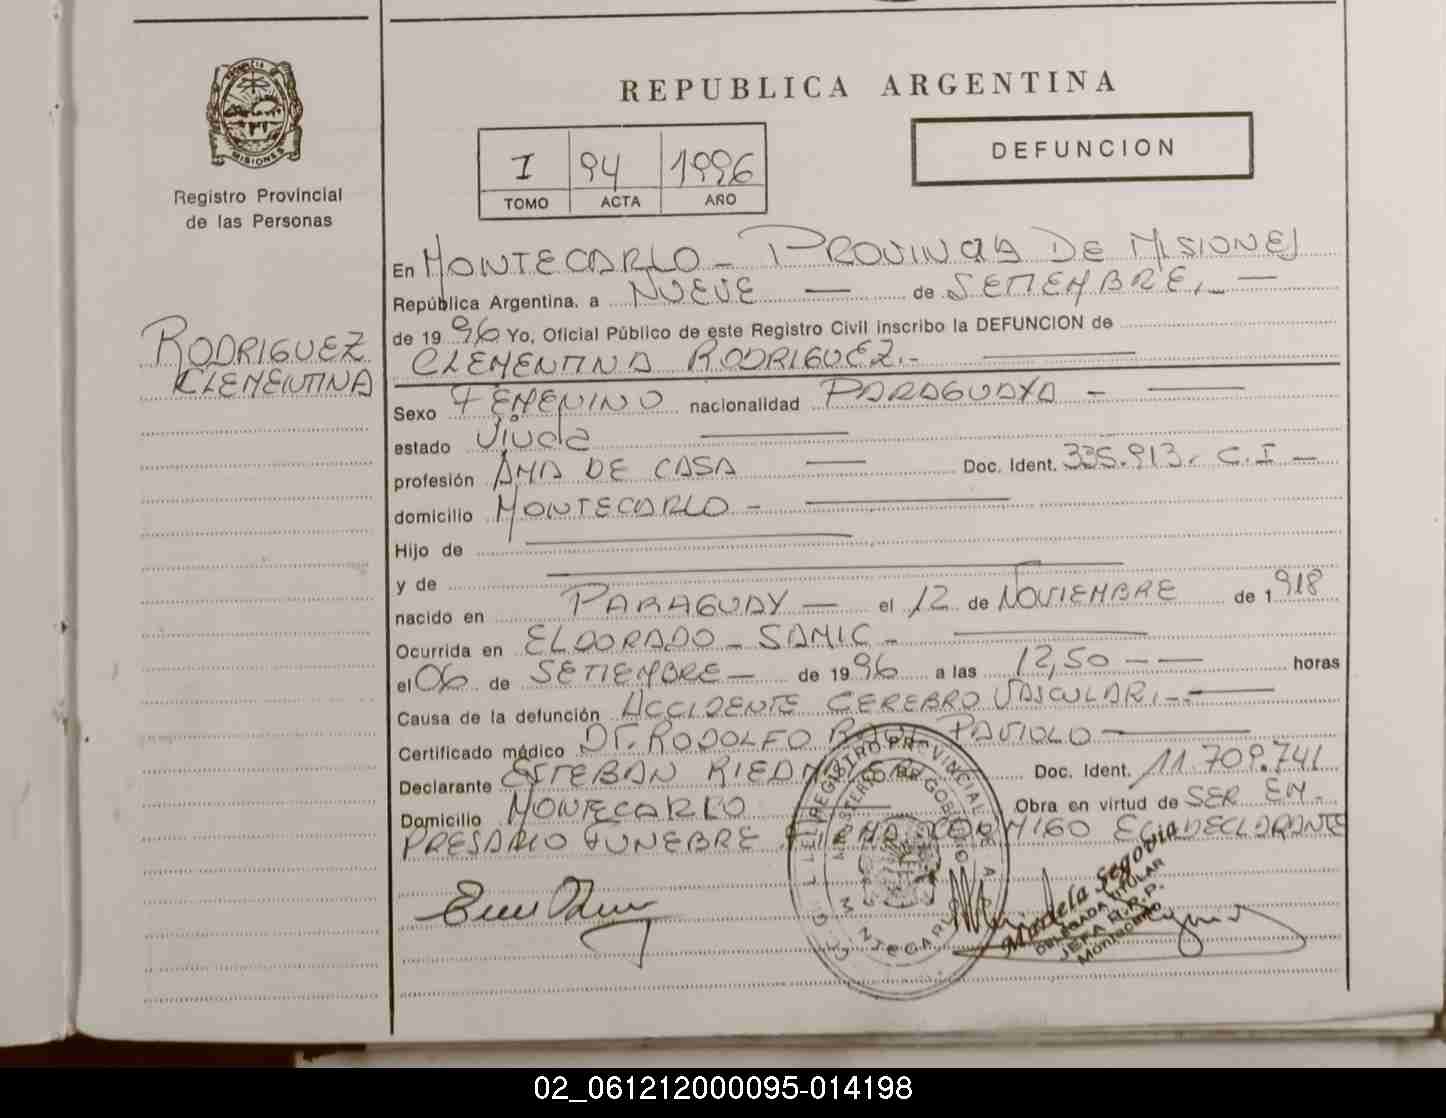 PROVINCIA DE
MISIONES
Registro Provincial
de las Personas
RODRIGUEZ
CLEMENTINA
REPUBLICA ARGENTINA
I 94 1996
TOMO ACTA AÑO
DEFUNCION
En MONTECARLO - PROVINCIA DE MISIONES
República Argentina, a NUEVE — de SETIEMBRE.- —
de 1996 Yo, Oficial Público de este Registro Civil inscribo la DEFUNCION de
CLEMENTINA RODRIGUEZ.- —
Sexo FEMENINO nacionalidad PARAGUAYA - —
estado Viuda —
profesión AMA DE CASA — Doc. Ident. 335.913. C.I —
domicilio MONTECARLO - —
Hijo de —
y de —
nacido en PARAGUAY — el 12 de NOVIEMBRE de 1918
Ocurrida en ELDORADO - SAMIC - —
el 06 de SETIEMBRE — de 1996 a las 12,50 — — horas
Causa de la defunción ACCIDENTE CEREBRO VASCULAR.- —
Certificado médico DR. RODOLFO —
Declarante ESTEBAN Doc. Ident. 11.709.741
Domicilio MONTECARLO — Obra en virtud de SER EM-
PRESARIO FUNEBRE FIRMA CONMIGO DECLARANTE
REGISTRO PROVINCIAL DE
MINISTERIO DE GOBIERNO
Mardela Segovia
DELEGADA TITULAR
JEFA R.R.P.
Montecarlo
02_061212000095-014198